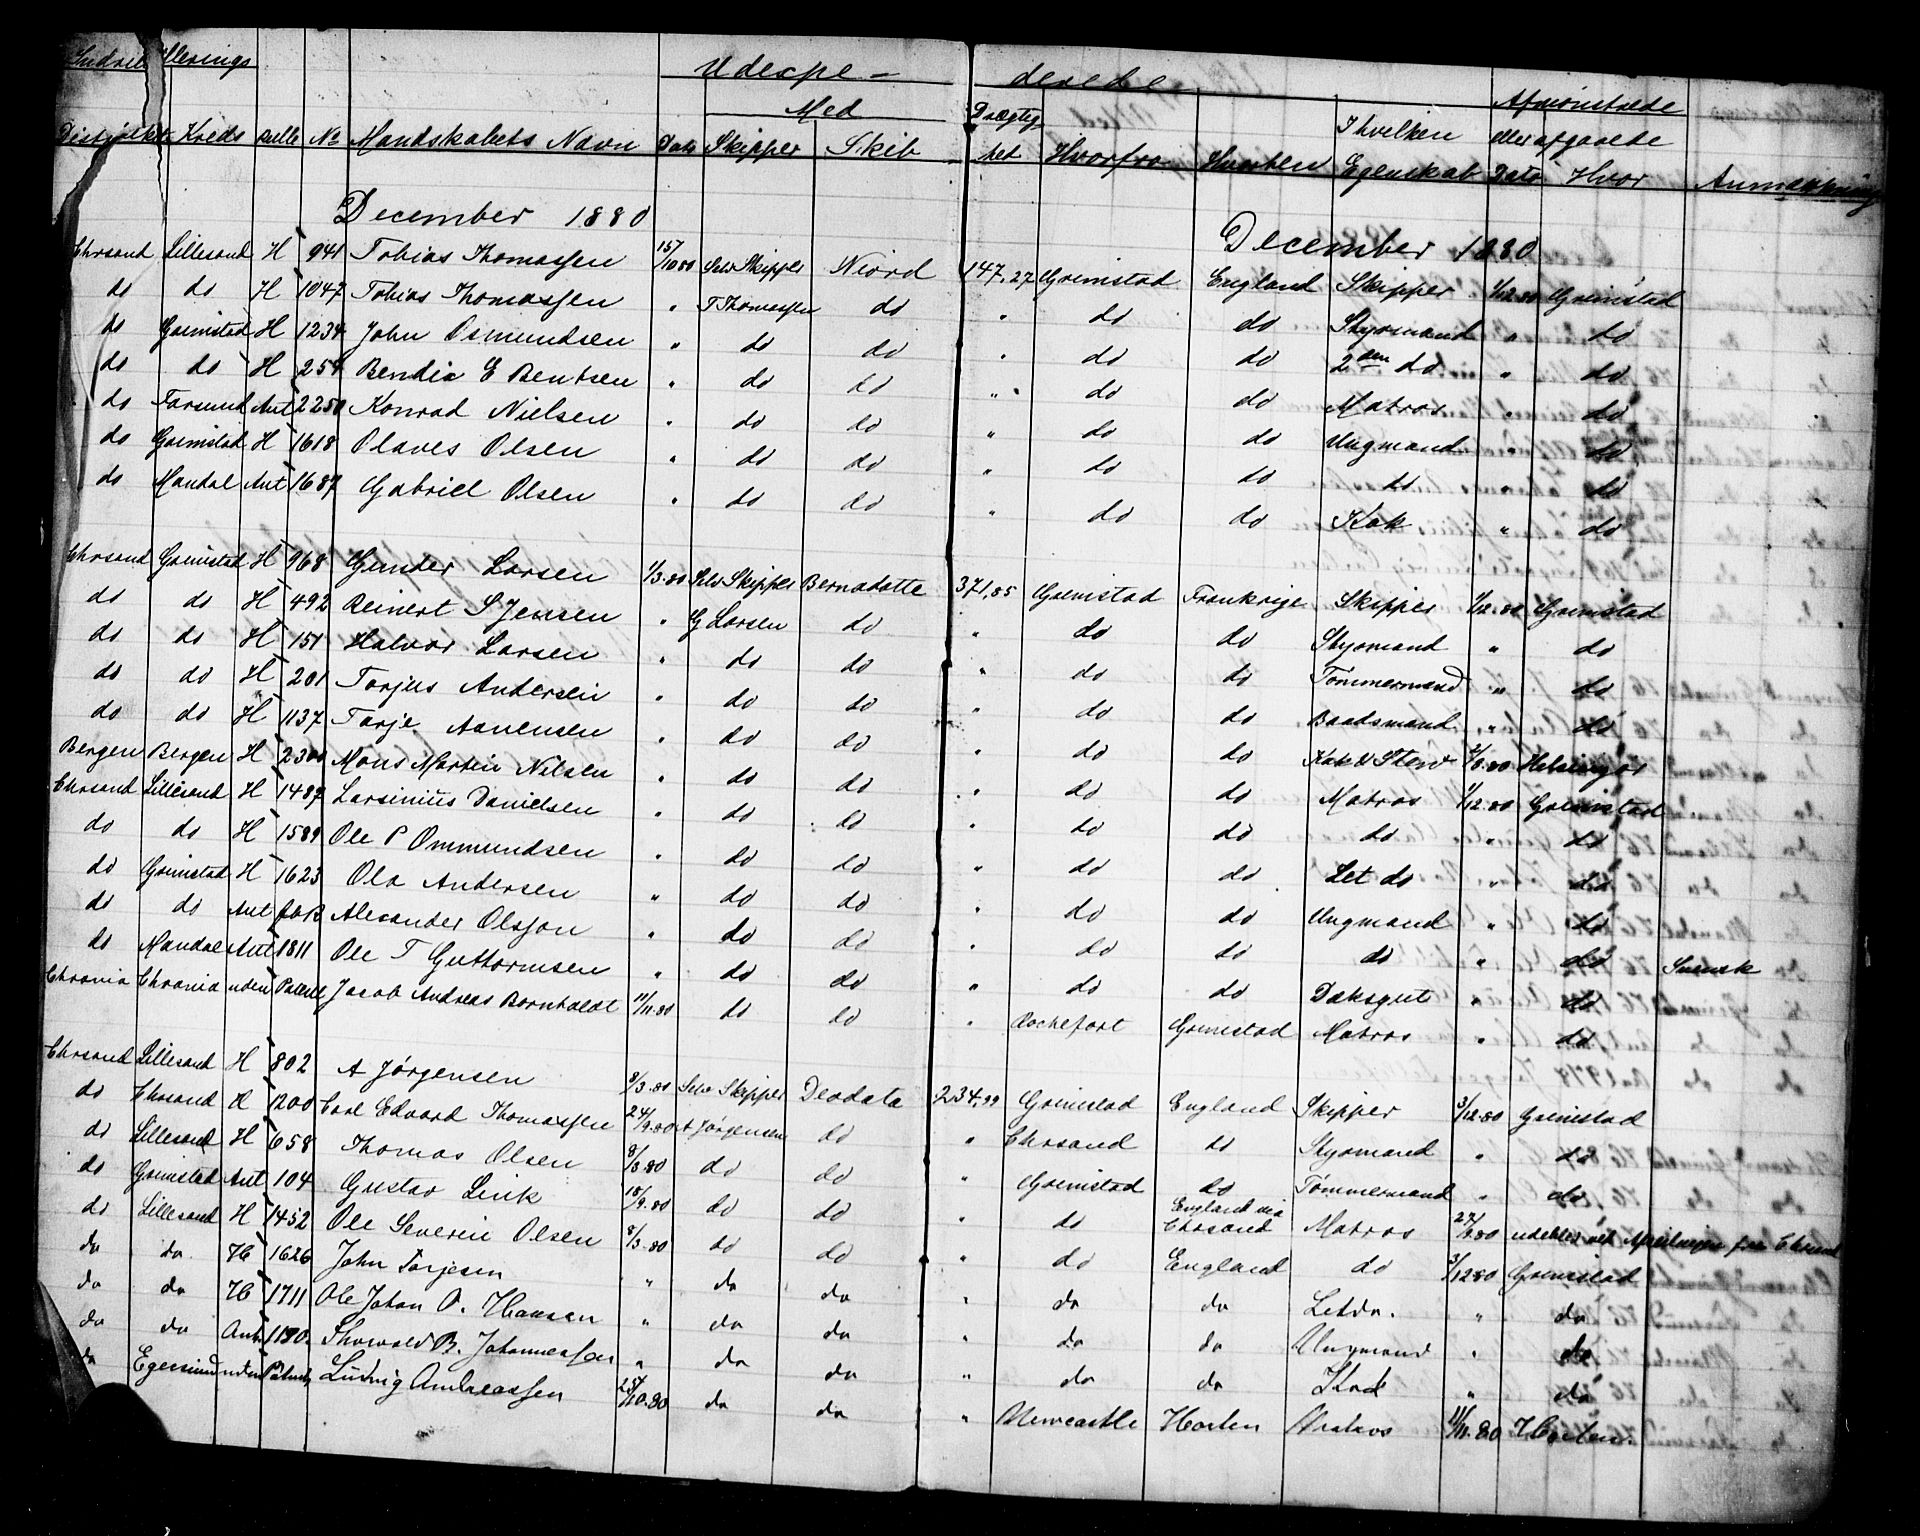 Indrullerings Udexpe- derede Afmønstrede
Med Drægtig- I hvilken eller afgaaede
Distrikt Kreds Rulle No Mandskabets Navn Dato Skipper Skib het Hvorfra Hvorhen Egenskab Dato Hvor Anmærkning
December 1880 December 1880
Chrsand Lillesand H 941 Tobias Thomassen 15/10 80 Selv Skipper Niord 147,27 Grimstad England Skipper 1/12.80 Grimstad
do do H 1047 Tobias Thomassen " T Thomassen do " do do Styrmand " do
do Grimstad H 1234 John Osmundsen " do do " do do 2den do " do
do do H 254 Bendix E Bentsen " do do " do do Matros " do
do Farsund Ant 2250 Konrad Nielsen " do do " do do Ungmand " do
do Grimstad H 1618 Olaves Olsen " do do " do do do " do
do Mandal Ant 1687 Gabriel Olsen " do do " do do Kok " do
Chrsand Grimstad H 968 Gunder Larsen 1/3.80 Selv Skipper Bernadotte 371,85 Grimstad Frankrige Skipper 1/12.80 Grimstad
do do H 492 Reinert S Jensen " G Larsen do " do do Styrmand " do
do do H 151 Halvor Larsen " do do " do do Tømmermand " do
do do H 201 Torjus Andersen " do do " do do Baadsmand " do
do do H 1137 Tarje Aanensen " do do " do do Kok & Stew 2/8.80 Helsingør
Bergen Bergen H 2300 Mons Martin Nilsen " do do " do do Matros 1/12.80 Grimstad
Chrsand Lillesand H 1487 Larsinius Danielsen " do do " do do do " do
do do H 1589 Ole P Ommundsen " do do " do do Let do " do
do Grimstad H 1623 Ola Andersen " do do " do do Ungmand " do
do do Ant Alexander Olsson " do do " do do do " do Svensk
do Mandal Ant 1811 Ole T Guttormsen " do do " do do Dæksgut " do
Chrania Chrania uden Patent Jacob Andreas Bornholdt 11/11.80 do do " Rochefort Grimstad Matros " do
Chrsand Lillesand H 802 A Jørgensen 8/3.80 Selv Skipper Deodata 234,99 Grimstad England Skipper 3/12.80 Grimstad
do Chrsand H 1200 Carl Edvard Thomassen 24/9.80 A Jørgensen do " Chrsand do Styrmand " do
do Lillesand H 658 Thomas Olsen 8/3.80 do do " Grimstad do Tømmermand " do
do Grimstad Ant 104 Gustav Link 18/9.80 do do " do England via Chrsand Matros 27/9.80 udeblev ved Afseilingen fra Chrsand
do Lillesand H 1452 Ole Severin Olsen 8/3.80 do do " do England do 3/12.80 Grimstad
do do H 1626 John Torjesen " do do " do do Let do. " do
do do H 1711 Ole Johan O. Hansen " do do " do do Ungmand " do
do do Ant. 1190 Thorvald B. Johannessen " do do " do do Kok " do
do Egersund uden Patent Ludvig Andreassen 25/10.80 do do " Newcastle Horten Matros 11/11.80 Horten.